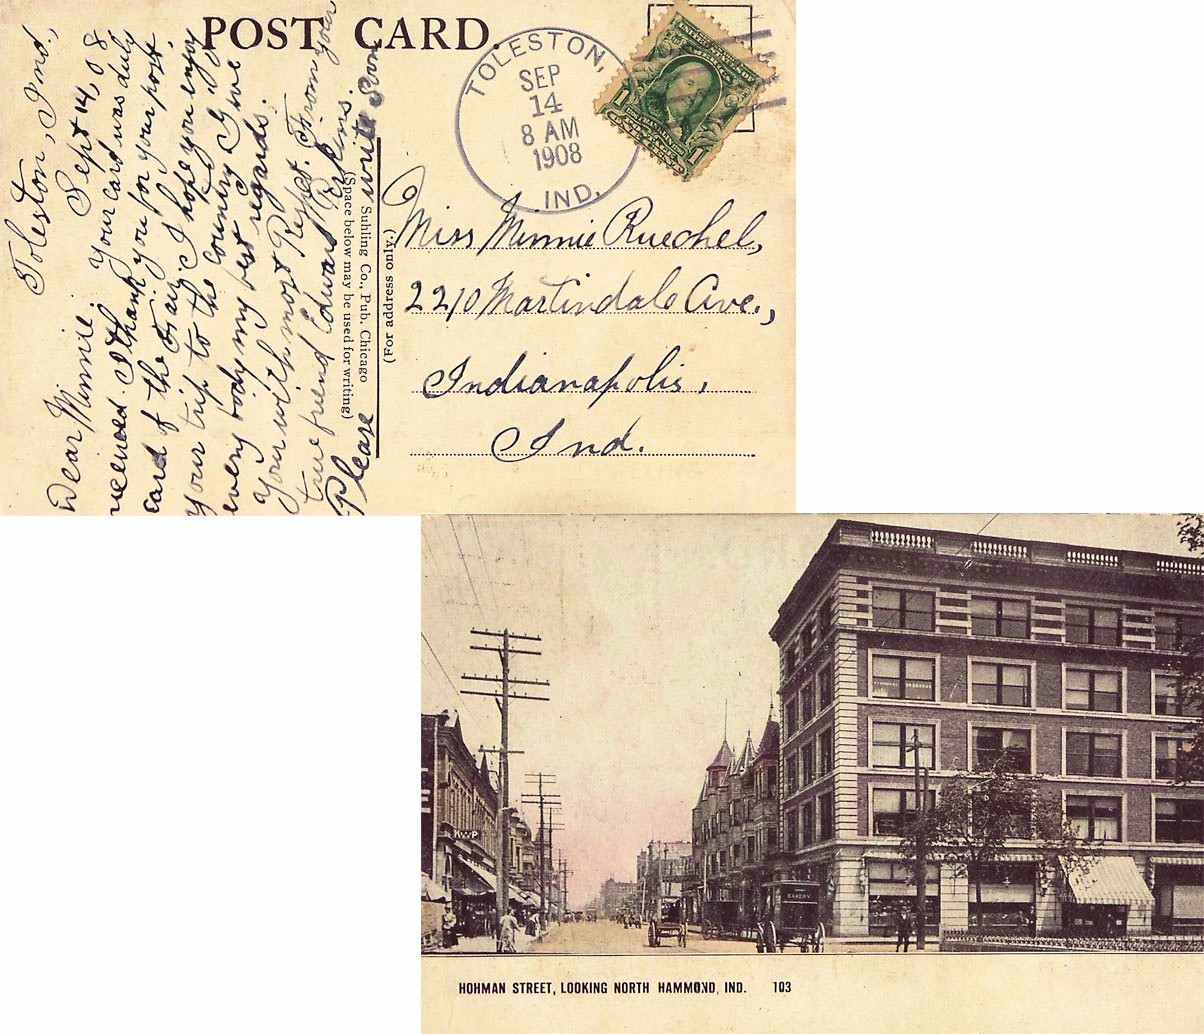 POST CARD.
TOLESTON,
SEP
14
8 AM
1908
IND.
1
1
Toleston, Ind.,
Sept 14, 08
Dear Minnie. Your card was duly
receved. I thank you for your post
card of the Fair. I hope you enjoy
your trip to the country. Give
every body my best regards.
Your with most Respect. From your
true friend Edward Perkins.
Please write soon
Suhling Co., Pub. Chicago
(Space below may be used for writing)
(For address only.)
Miss Minnie Ruechel,
2210 Martindale Ave.,
Indianapolis,
Ind.
BAKERY
HOHMAN STREET, LOOKING NORTH HAMMOND, IND. 103